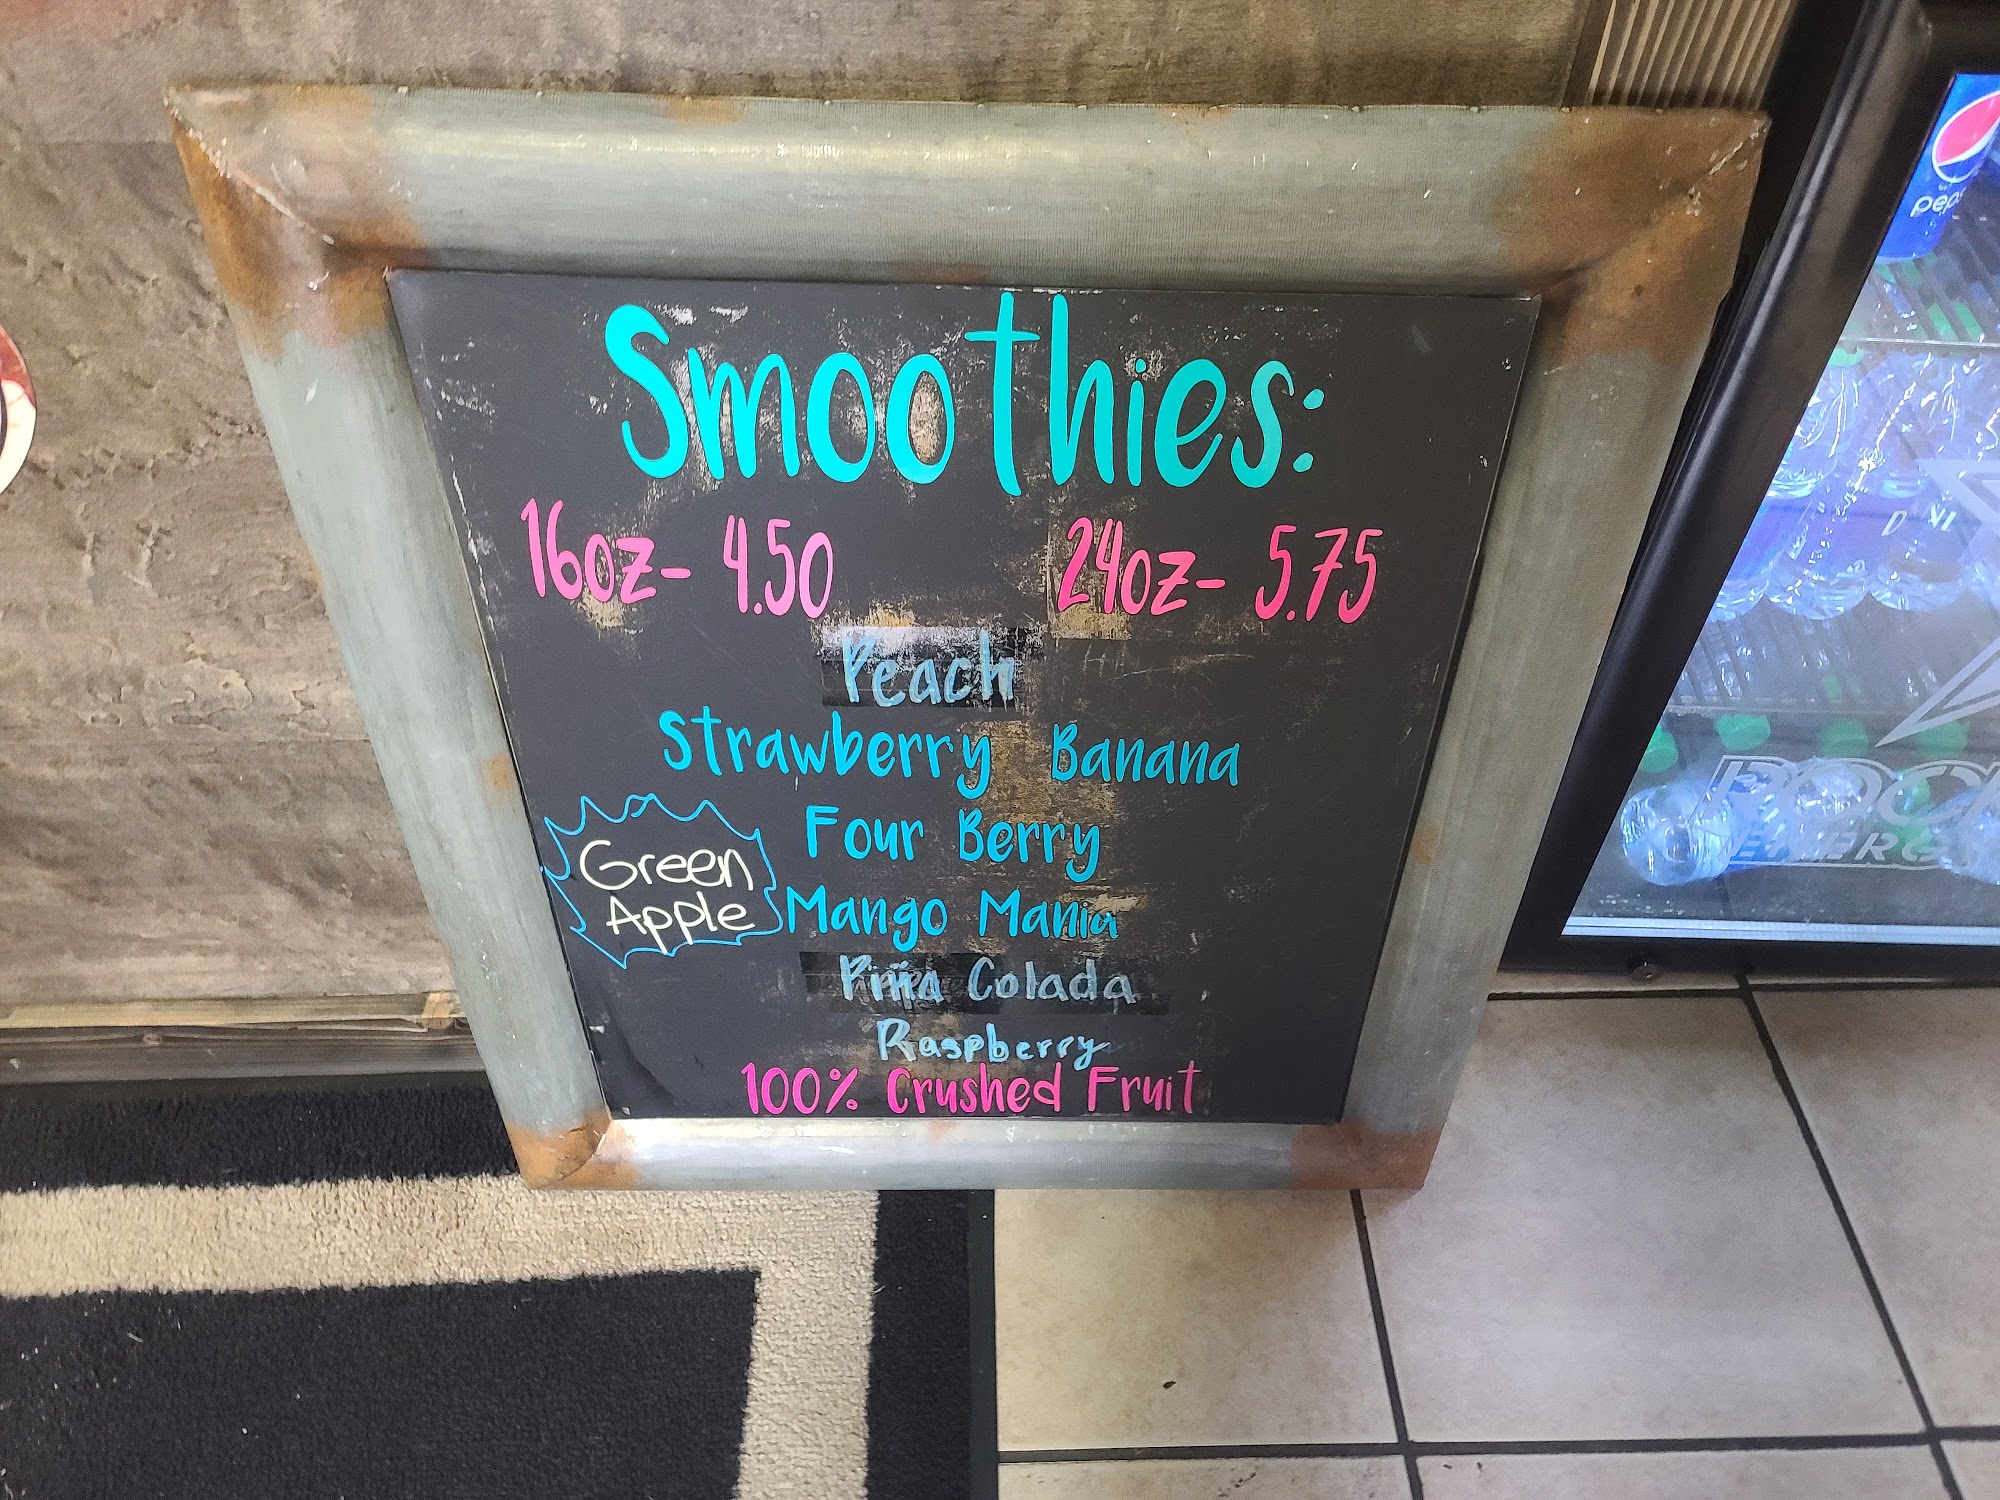 Smoothies:
16oz- 4.50 24oz- 5.75
Peach
Strawberry Banana
Four Berry
Green
Apple
Mango Mania
Piña Colada
Raspberry
100% Crushed Fruit
pepsi
ROCK
ENERG